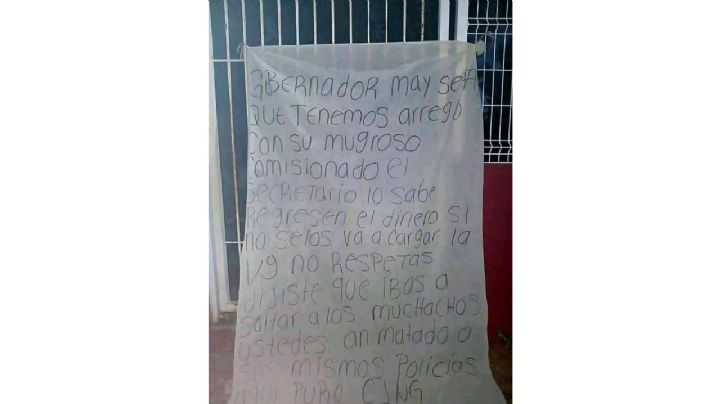 GBERNADOR may seta
QUE TENEMOS arreglo
Con su mugroso
Comisionado el
SECRETARIO lo sabe
Regresen el dinero si
no selos va a cargar la
vg no RESPETAS
dijiste que IBAS a
soltar a los muchachos
ustedes an matado a
sus mismos Policias
aqui PURO CJNG